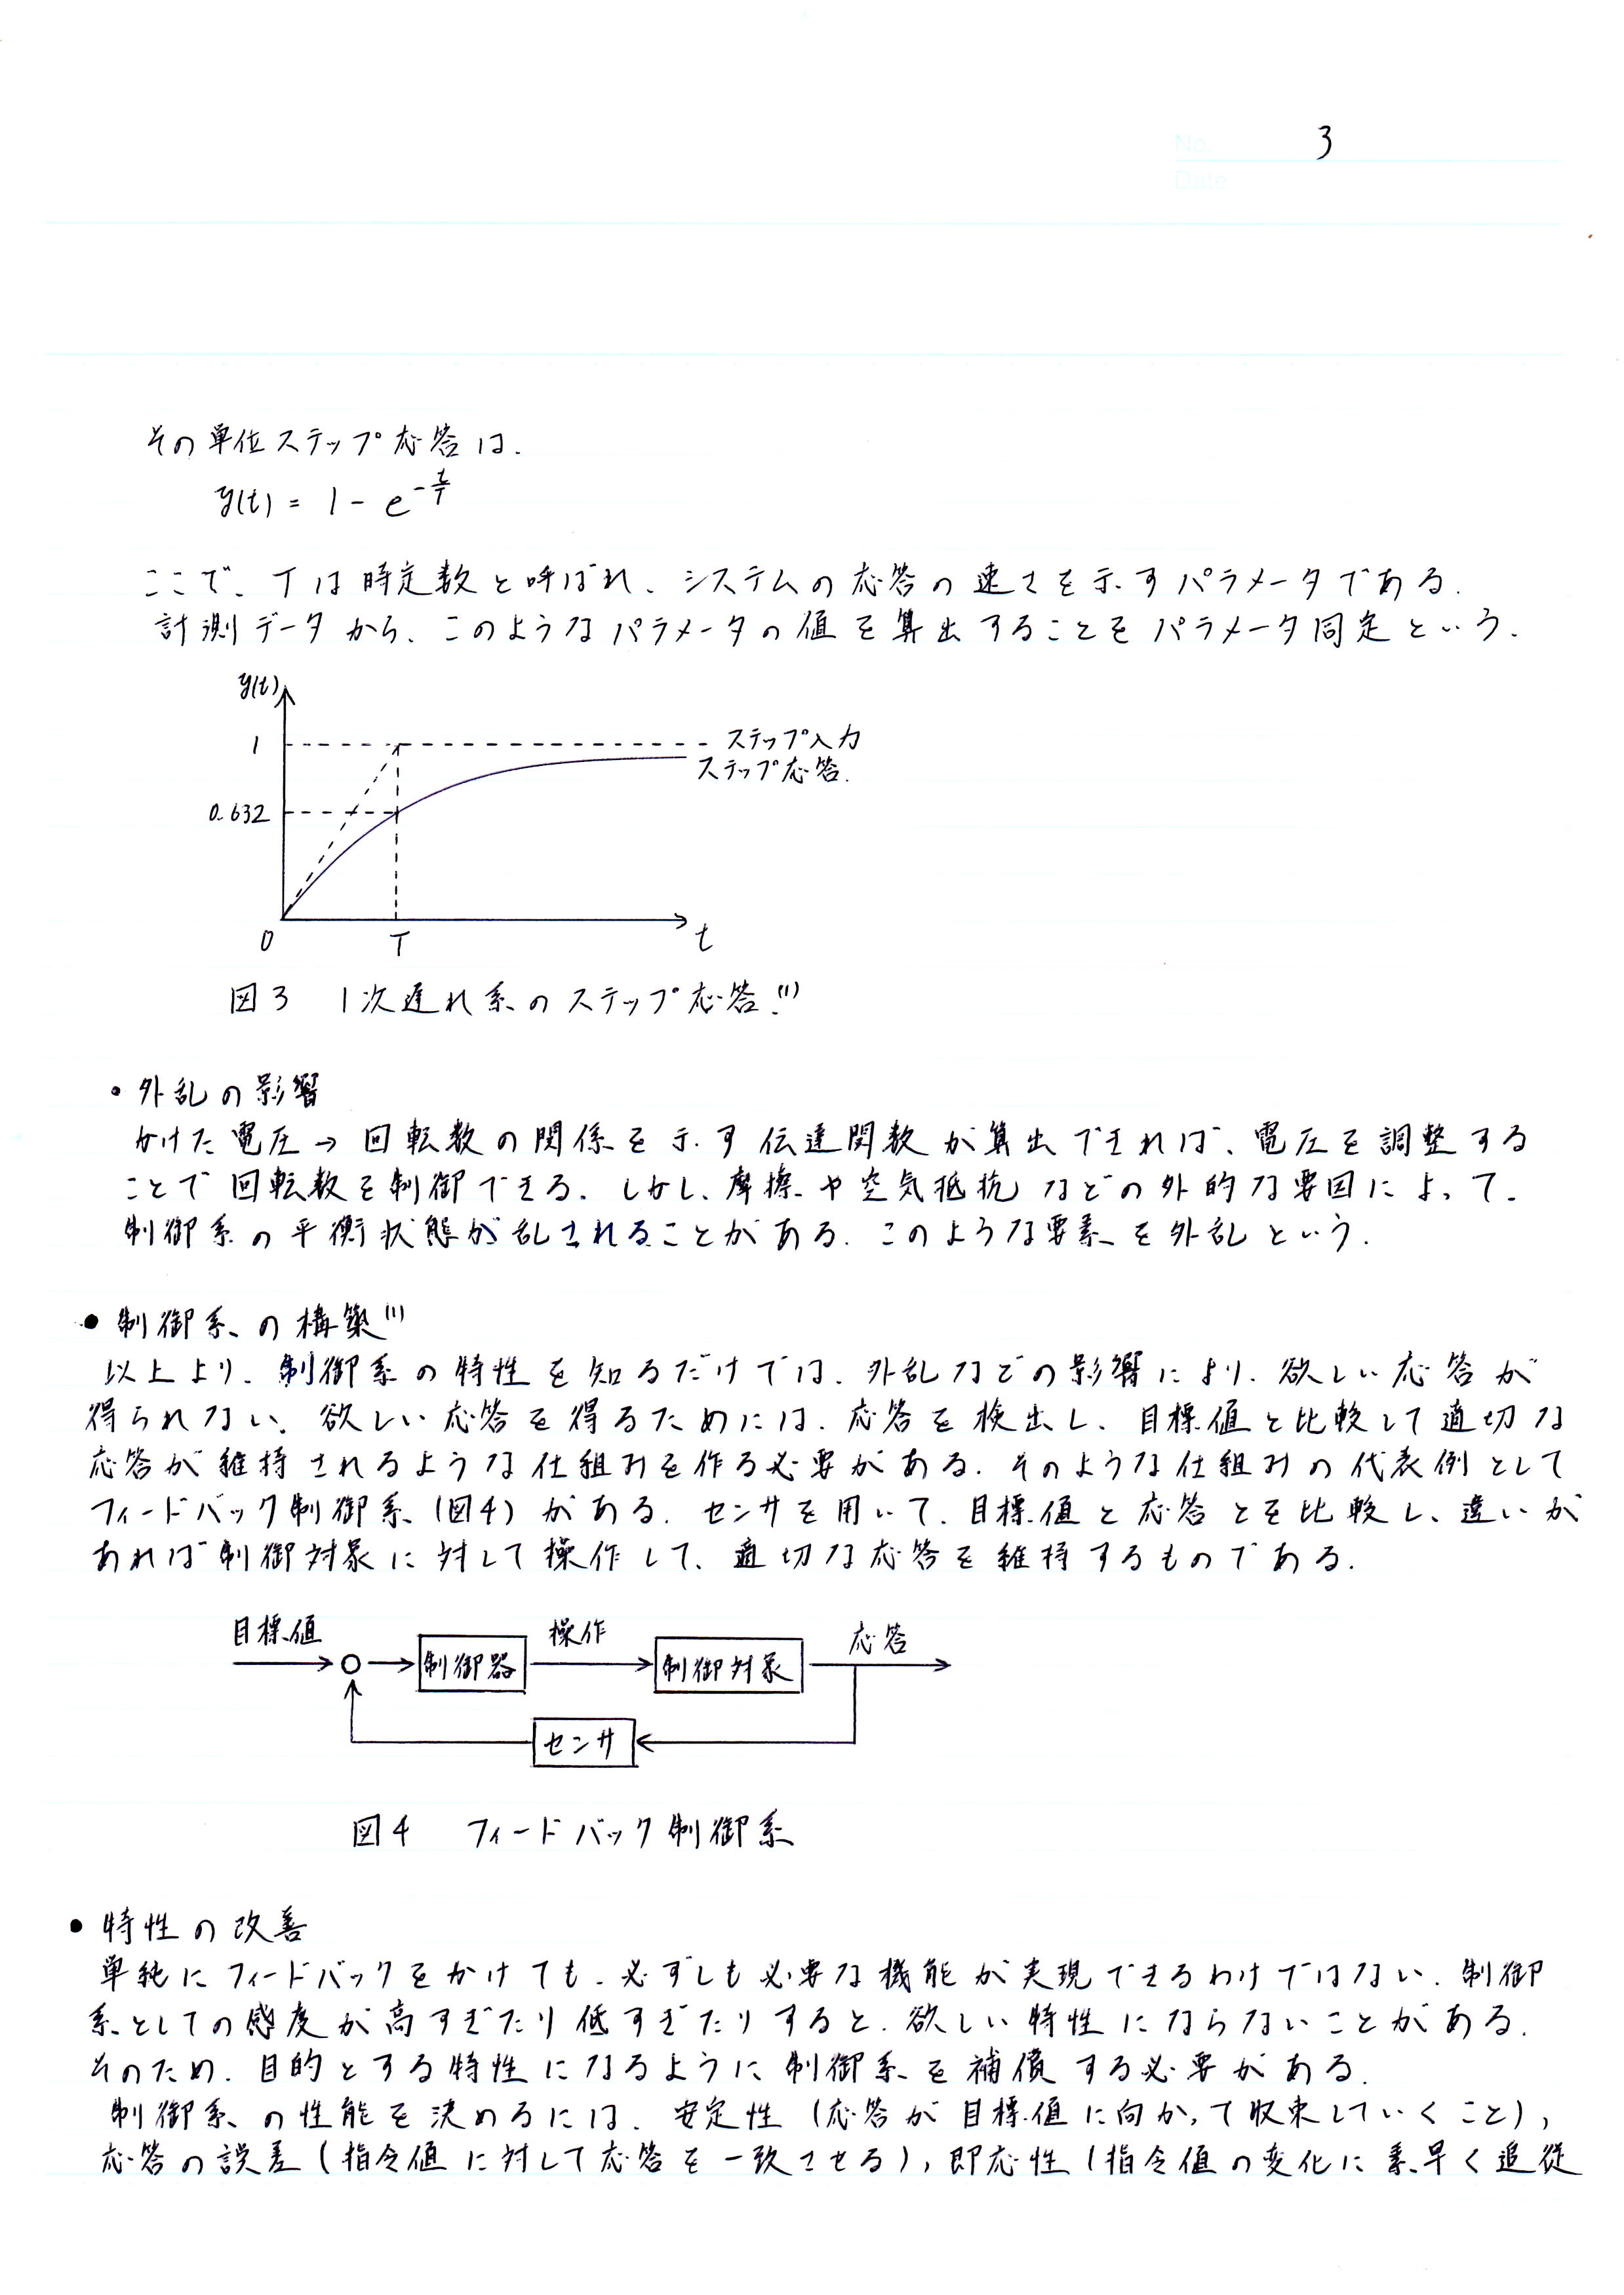 No. 3
Date
その単位ステップ応答は、
y(t) = 1 - e^{-t/T}
ここで、Tは時定数と呼ばれ、システムの応答の速さを示すパラメータである。
計測データから、このようなパラメータの値を算出することをパラメータ同定という。
y(t)
1
ステップ入力
ステップ応答.
0.632
0
T
t
図3 1次遅れ系のステップ応答.(1)
・外乱の影響
かけた電圧→回転数の関係を示す伝達関数が算出できれば、電圧を調整する
ことで回転数を制御できる。しかし、摩擦や空気抵抗などの外的な要因によって、
制御系の平衡状態が乱されることがある。このような要素を外乱という。
●制御系の構築(1)
以上より、制御系の特性を知るだけでは、外乱などの影響により、欲しい応答が
得られない。欲しい応答を得るためには、応答を検出し、目標値と比較して適切な
応答が維持されるような仕組みを作る必要がある。そのような仕組みの代表例として
フィードバック制御系(図4)がある。センサを用いて、目標値と応答とを比較し、違いが
あれば制御対象に対して操作して、適切な応答を維持するものである。
目標値
制御器
操作
制御対象
応答
センサ
図4 フィードバック制御系
●特性の改善
単純にフィードバックをかけても、必ずしも必要な機能が実現できるわけではない。制御
系としての感度が高すぎたり低すぎたりすると、欲しい特性にならないことがある。
そのため、目的とする特性になるように制御系を補償する必要がある。
制御系の性能を決めるには、安定性(応答が目標値に向かって収束していくこと),
応答の誤差(指令値に対して応答を一致させる),即応性(指令値の変化に素早く追従